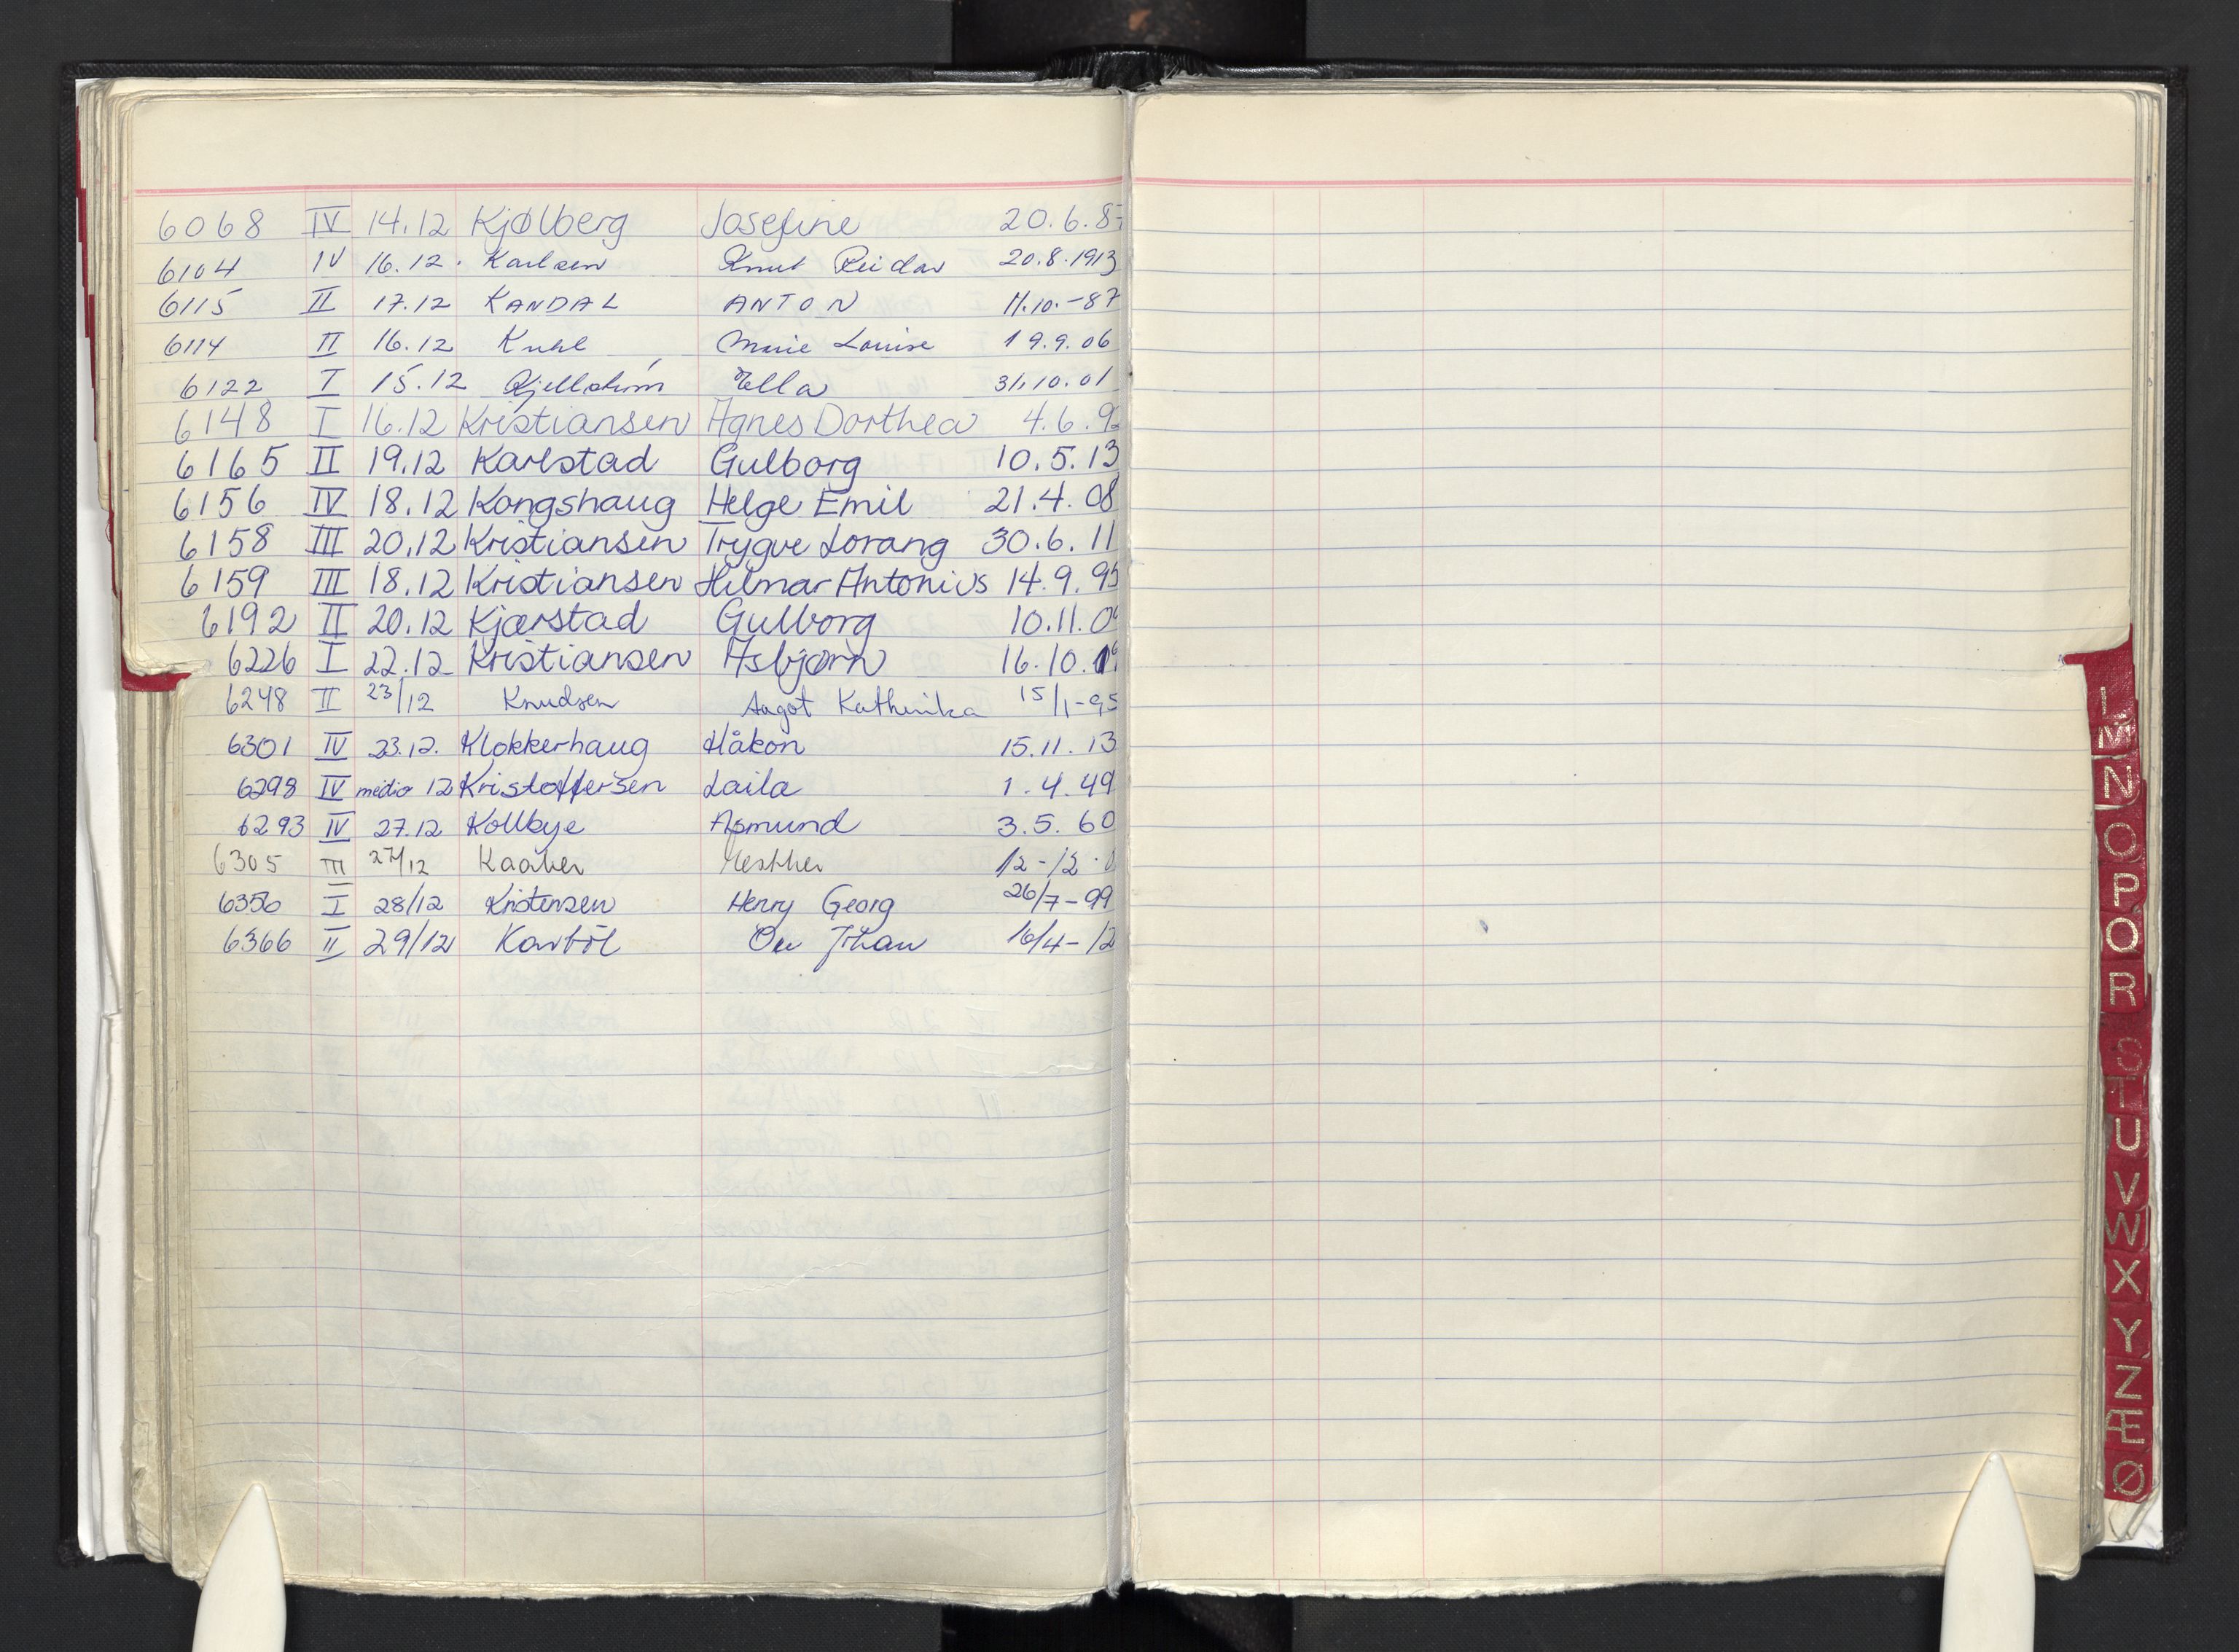 6068 IV 14.12 Kjølberg Josefine 20.6.87
6104 IV 16.12. Karlsen Knut Reidar 20.8.1913
6115 II 17.12 KANDAL ANTON 11.10.-87
6114 II 16.12 Kuhl Marie Louise 19.9.06
6122 I 15.12 Kjellström Ella 31.10.01
6148 I 16.12 Kristiansen Agnes Dorthea 4.6.92
6165 II 19.12 Karlstad Gulborg 10.5.13
6156 IV 18.12 Kongshaug Helge Emil 21.4.08
6158 III 20.12 Kristiansen Trygve Lorang 30.6.11
6159 III 18.12 Kristiansen Hilmar Antonius 14.9.95
6192 II 20.12 Kjærstad Gulborg 10.11.
6226 I 22.12 Kristiansen Asbjørn 16.10.
6248 II 23/12 Knudsen Aagot Kathinka 15/1-95
6301 IV 23.12. Klokkerhaug Håkon 15.11.13
6298 IV medio 12 Kristoffersen Laila 1.4.49
6293 IV 27.12 Kollbye Asmund 3.5.60
6305 III 27/12 Kaaber Esther 12-12-
6356 I 28/12 Kristensen Henry Georg 26/7-99
6366 II 29/12 Karböl Johan 16/4-12
L
M
N
O
P
Q
R
S
T
U
V
W
X
Y
Z
Æ
Ø